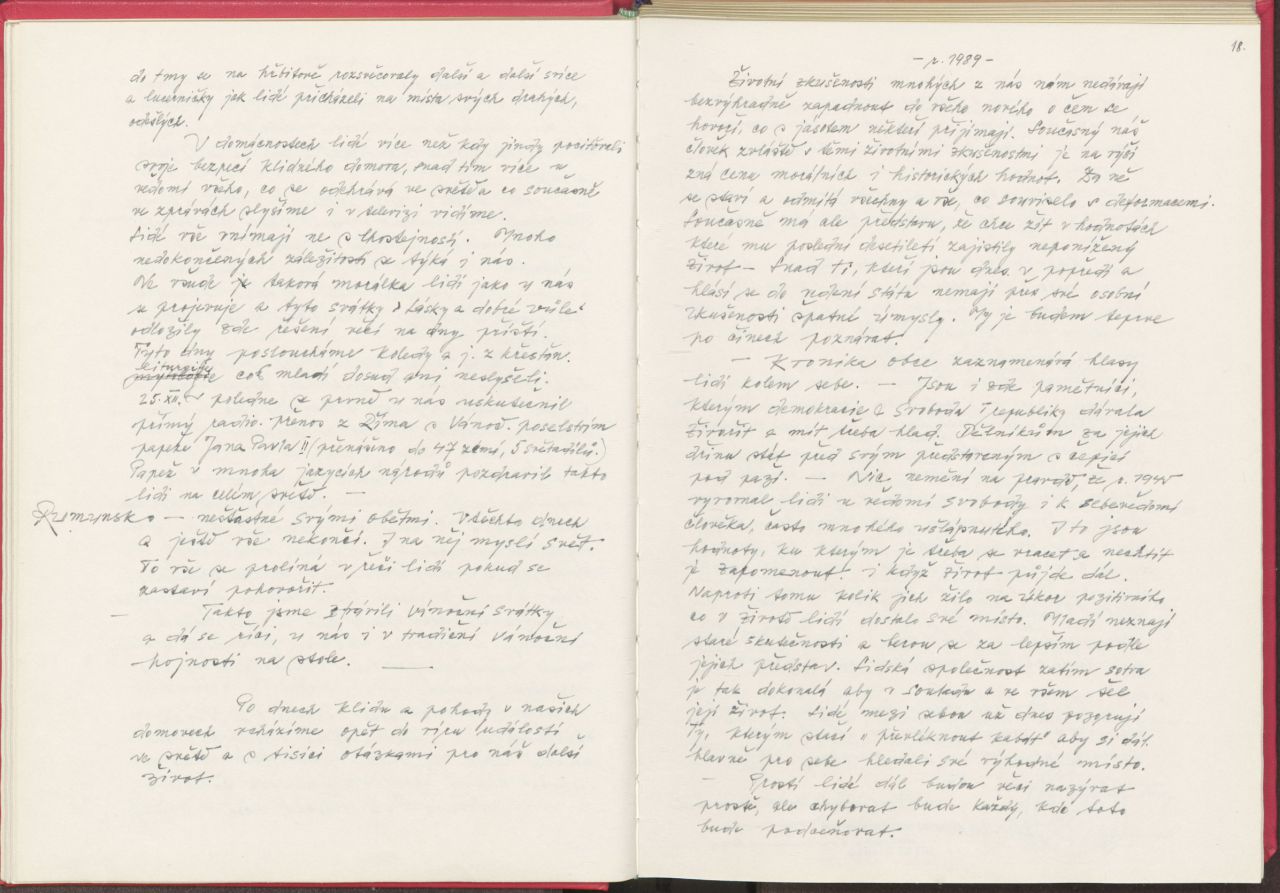 do tmy se na hřbitově rozsvěcovaly další a další svíce
a lucerničky jak lidé přicházeli na místa svých drahých,
odešlých.
V domácnostech lidé více než kdy jindy pociťovali
svoje bezpečí klidného domova, snad tím více u
vědomí všeho, co se odehrává ve světě a co současně
ve zprávách slyšíme i v televizi vidíme.
Lidé vše vnímají ne s lhostejností. Mnoho
nedokončených záležitostí se týká i nás.
Ne všude je taková morálka lidí jako u nás
se projevuje a tyto svátky "Lásky a dobré vůle"
odložily zde řešení věcí na dny příští.
Tyto dny posloucháme koledy a j. z křesťan.
liturgie což mladí dosud ani neslyšeli.
25. XII. v poledne se prvně u nás uskutečnil
přímý radio. přenos z Říma s Vánoč. poselstvím
papeže Jana Pavla II (přenášeno do 47 zemí, 5 světadílů.)
Papež v mnoha jazycích národů pozdravil takto
lidi na celém světě. —
Rumunsko — nešťastné svými oběťmi. V těchto dnech
a ještě vše nekončí. I na něj myslí svět.
To vše se prolíná v řeči lidí pokud se
zastaví pohovořit.
— Takto jsme strávili vánoční svátky
a dá se říci, u nás i v tradiční vánoční
hojnosti na stole. —
Po dnech klidu a pohody v našich
domovech vcházíme opět do víru událostí
ve světě a s tisíci otázkami pro náš další
život.
18.
- r. 1989 -
Životní zkušenosti mnohých z nás nám nedávají
bezvýhradně zapadnout do všeho nového o čem se
hovoří, co s jásotem někteří přijímají. Současný náš
člověk zvláště s těmi životními zkušenostmi je na výši
zná cenu morálních i historických hodnot. Za ně
se staví a odmítá všechny a vše, co souviselo s deformacemi.
Současně má ale představu, že chce žít v hodnotách
které mu poslední desetiletí zajistily neponížený
život — Snad ti, kteří jsou dnes v popředí a
hlásí se do vedení státu nemají přes své osobní
zkušenosti špatné úmysly. My je budem teprve
po činech poznávat.
— Kronika obce zaznamenává hlasy
lidí kolem sebe. — Jsou i zde pamětníci,
kterým demokracie a svoboda I republiky dávala
živořit a mít třeba hlad. Dělníkům za jejich
dřinu stát před svým představeným s čepicí
pod paží. — Nic nemění na pravdě, že r. 1945
vyrovnal lidi u vědomí svobody i k sebevědomí
člověka, často mnohého ušlápnutého. I to jsou
hodnoty, ku kterým je třeba se vracet a nechtít
je zapomenout i když život půjde dál.
Naproti tomu kolik jich žilo na úkor pozitivního
co v životě lidí dostalo své místo. Mladí neznají
staré skutečnosti a berou se za lepším podle
jejich představ. Lidská společnost zatím sotva
je tak dokonalá aby v souladu a ve všem šel
její život. Lidé mezi sebou už dnes pozorují
Ty, kterým stačí "převléknout kabát" aby si dál
hlavně pro sebe hledali své výhodné místo.
— Prostí lidé dál budou věci nazývat
prostě, ale chybovat bude každý, kdo toto
bude podceňovat.